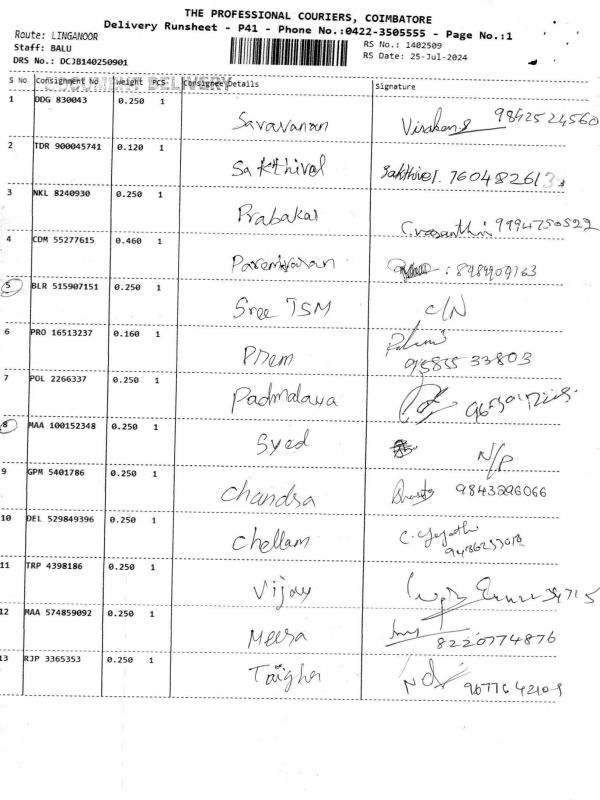 THE PROFESSIONAL COURIERS, COIMBATORE
Delivery Runsheet - P41 - Phone No.:0422-3505555 - Page No.:1
Route: LINGANOOR
Staff: BALU
DRS No.: DCJB140250901
RS No.: 1402509
RS Date: 25-Jul-2024
DOCUMENT DELIVERY
S No Consignment No Weight PCS Consignee Details Signature
1 DDG 830043 0.250 1 Saravanan 9842524560
2 TDR 900045741 0.120 1 Sakthivel Sakthivel. 760482613
3 NKL 8240930 0.250 1 Prabakar 9994750522
4 CDM 55277615 0.460 1
5 BLR 515907151 0.250 1 Sree TSM C/N
6 PRO 16513237 0.160 1 Prem 95855 33803
7 POL 2266337 0.250 1 Padmalawa
8 MAA 100152348 0.250 1 Syed N/P
9 GPM 5401786 0.250 1 Chandra 9843296066
10 DEL 529849396 0.250 1 Chellam
11 TRP 4398186 0.250 1 Vijay
12 MAA 574859092 0.250 1 Meera 8220774876
13 RJP 3365353 0.250 1